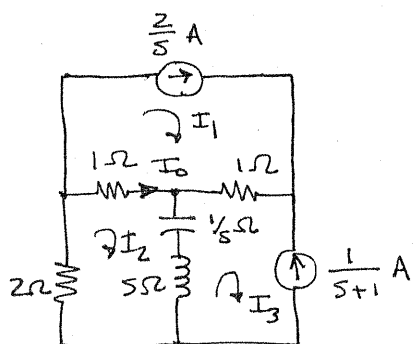 2/s A
I₁
1Ω I₀ 1Ω
1/s Ω
I₂
2Ω sΩ
I₃
1/s+1 A